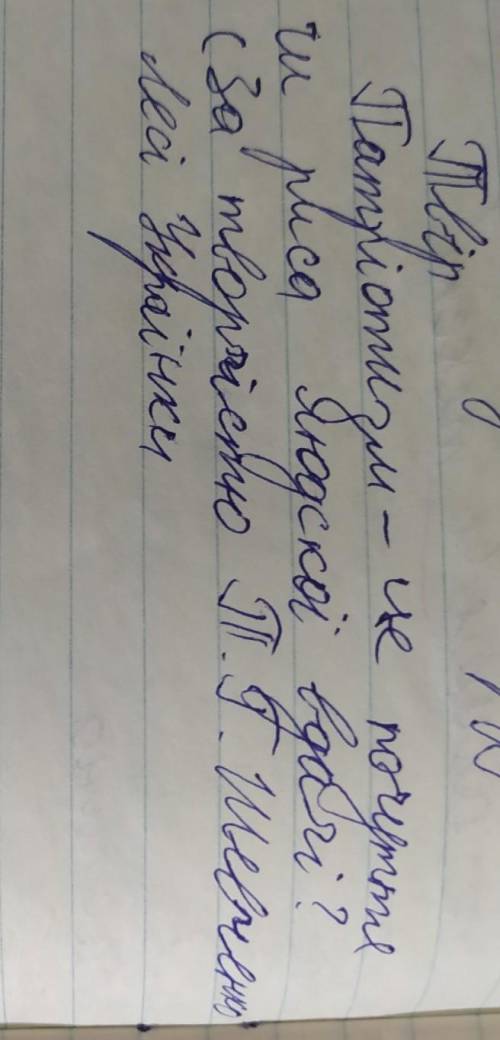 Твір
Патріотизм - це почуття
чи риса людскої вдачі?
(За творчістю Т.Г. Шевченко
Лесі Українки